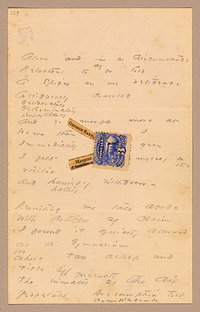 129
Alone and in a Circumstance
Reluctant to be told
A Spider on my reticence
Assiduously crawled
deliberately
determinately
impertinently
And so much more at
Home than I
Immediately grew
I felt myself a
visitor
And hurriedly withdrew -
hastily
George Sand
Mauprat
Revisiting my late abode
With articles of claim
I found it quietly assumed
as a Gymnasium
Where tax asleep and
title off
The inmates of the Air
Perpetual presumption took